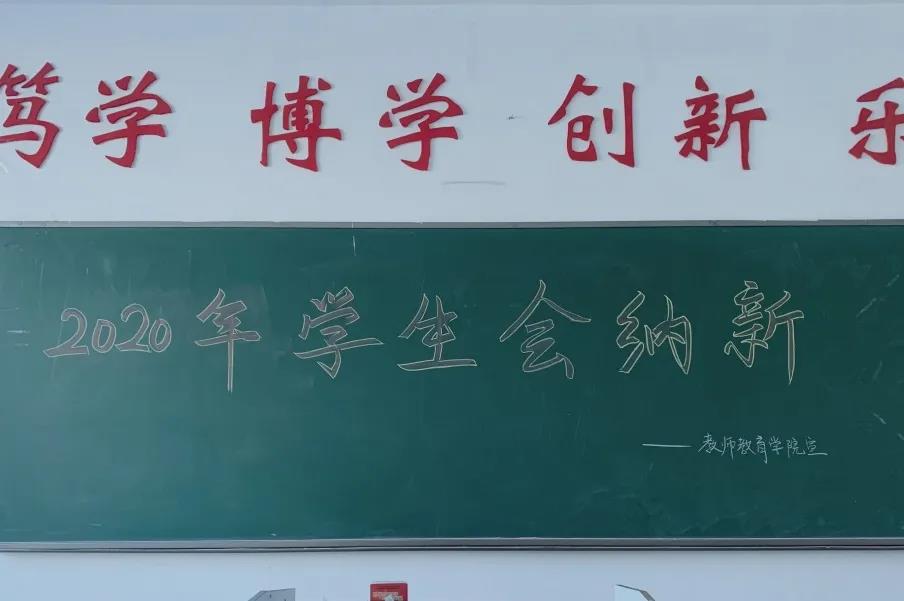 笃学 博学 创新 乐
2020年学生会纳新
——教师教育学院宣